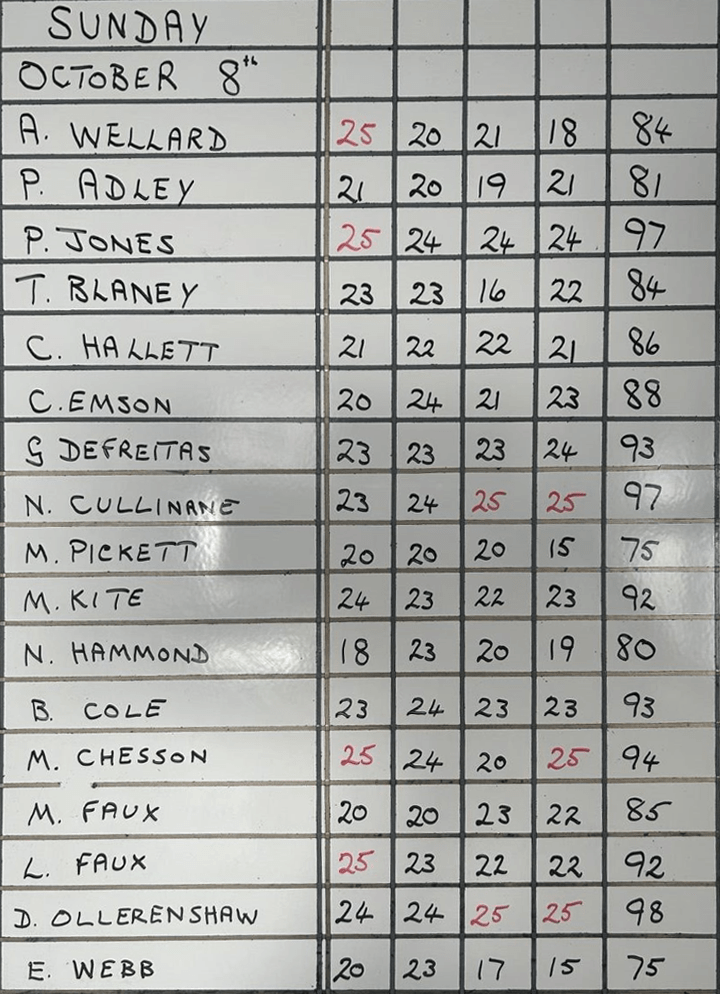 SUNDAY
OCTOBER 8th
A. WELLARD 25 20 21 18 84
P. ADLEY 21 20 19 21 81
P. JONES 25 24 24 24 97
T. BLANEY 23 23 16 22 84
C. HALLETT 21 22 22 21 86
C. EMSON 20 24 21 23 88
G DEFREITAS 23 23 23 24 93
N. CULLINANE 23 24 25 25 97
M. PICKETT 20 20 20 15 75
M. KITE 24 23 22 23 92
N. HAMMOND 18 23 20 19 80
B. COLE 23 24 23 23 93
M. CHESSON 25 24 20 25 94
M. FAUX 20 20 23 22 85
L. FAUX 25 23 22 22 92
D. OLLERENSHAW 24 24 25 25 98
E. WEBB 20 23 17 15 75